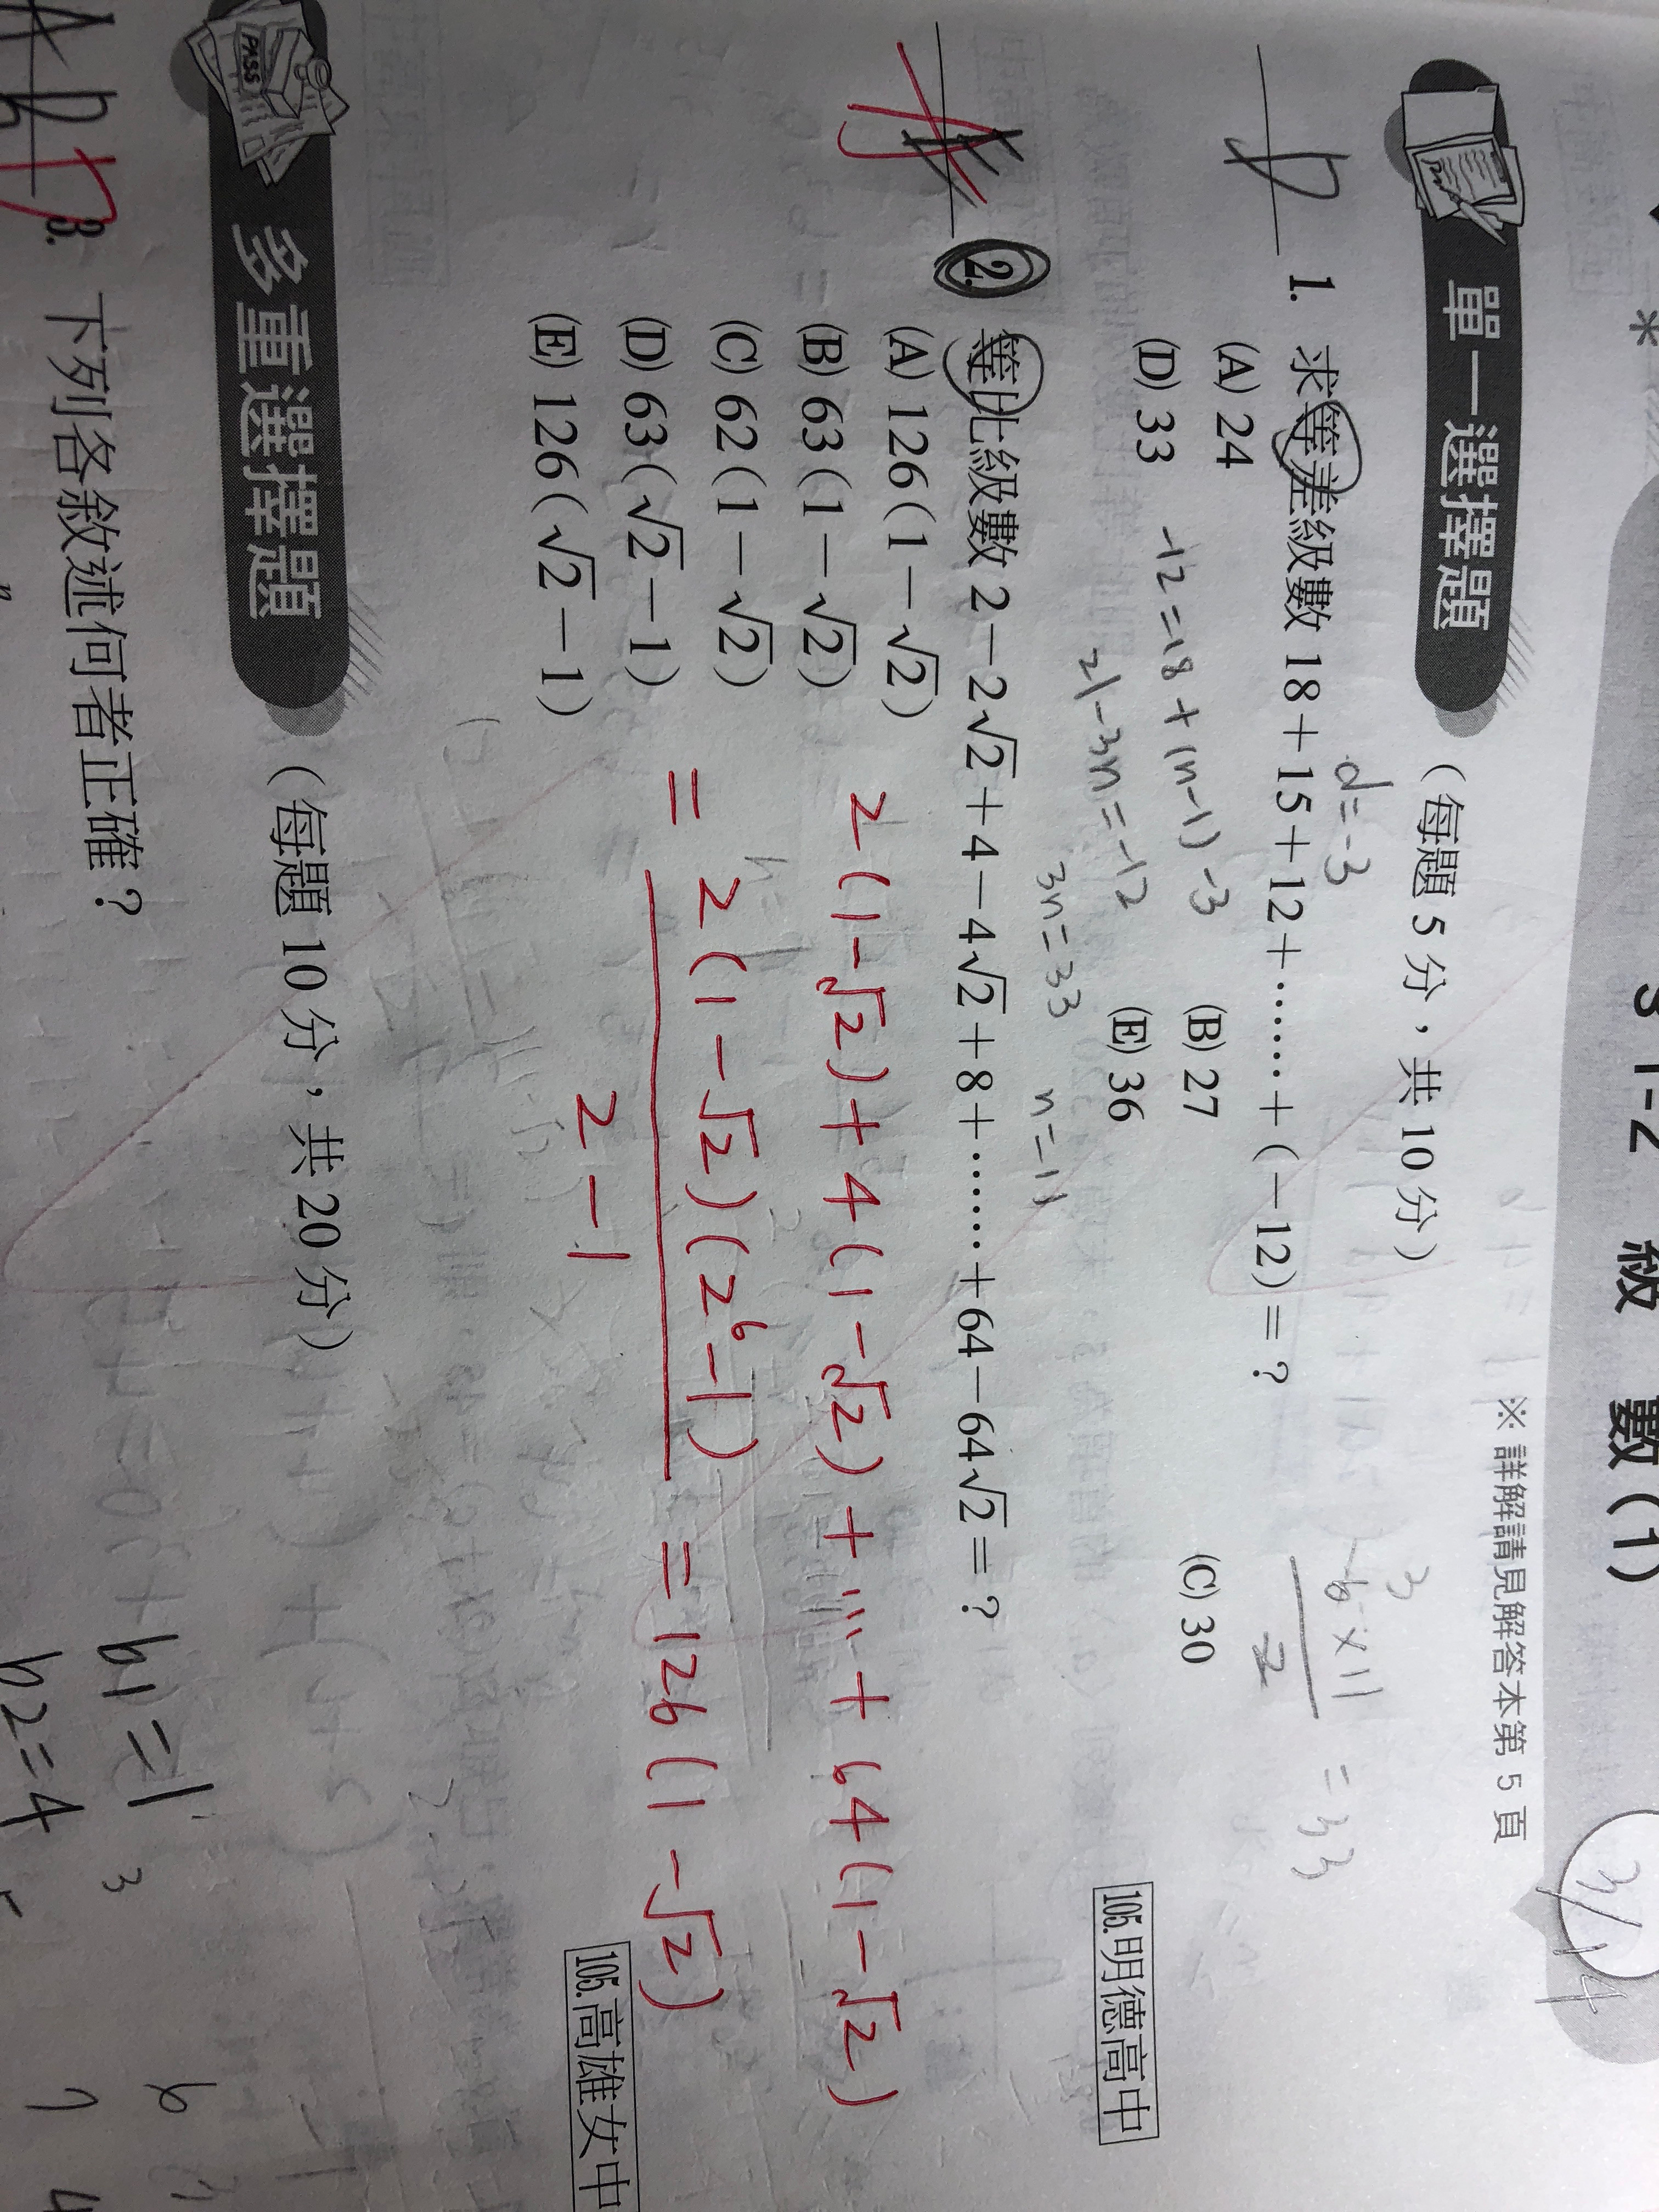 級 數(1)
3/14
※ 詳解請見解答本第 5 頁
單一選擇題 (每題 5 分,共 10 分)
d=-3
1. 求等差級數 18+15+12+……+(−12)=?
(A) 24 (B) 27 (C) 30
(D) 33 (E) 36
-12=18+(n-1)-3
21-3n=-12
3n=33 n=11
=33
105.明德高中
2. 等比級數 2−2√2+4−4√2+8+……+64−64√2=?
(A) 126(1−√2)
(B) 63(1−√2)
(C) 62(1−√2)
(D) 63(√2−1)
(E) 126(√2−1)
2(1-√2)+4(1-√2)+…+64(1-√2)
= 2(1-√2)(2⁶-1)
2-1
=126(1-√2)
105.高雄女中
PASS
多重選擇題 (每題 10 分,共 20 分)
3. 下列各敘述何者正確?
b1=1
b2=4